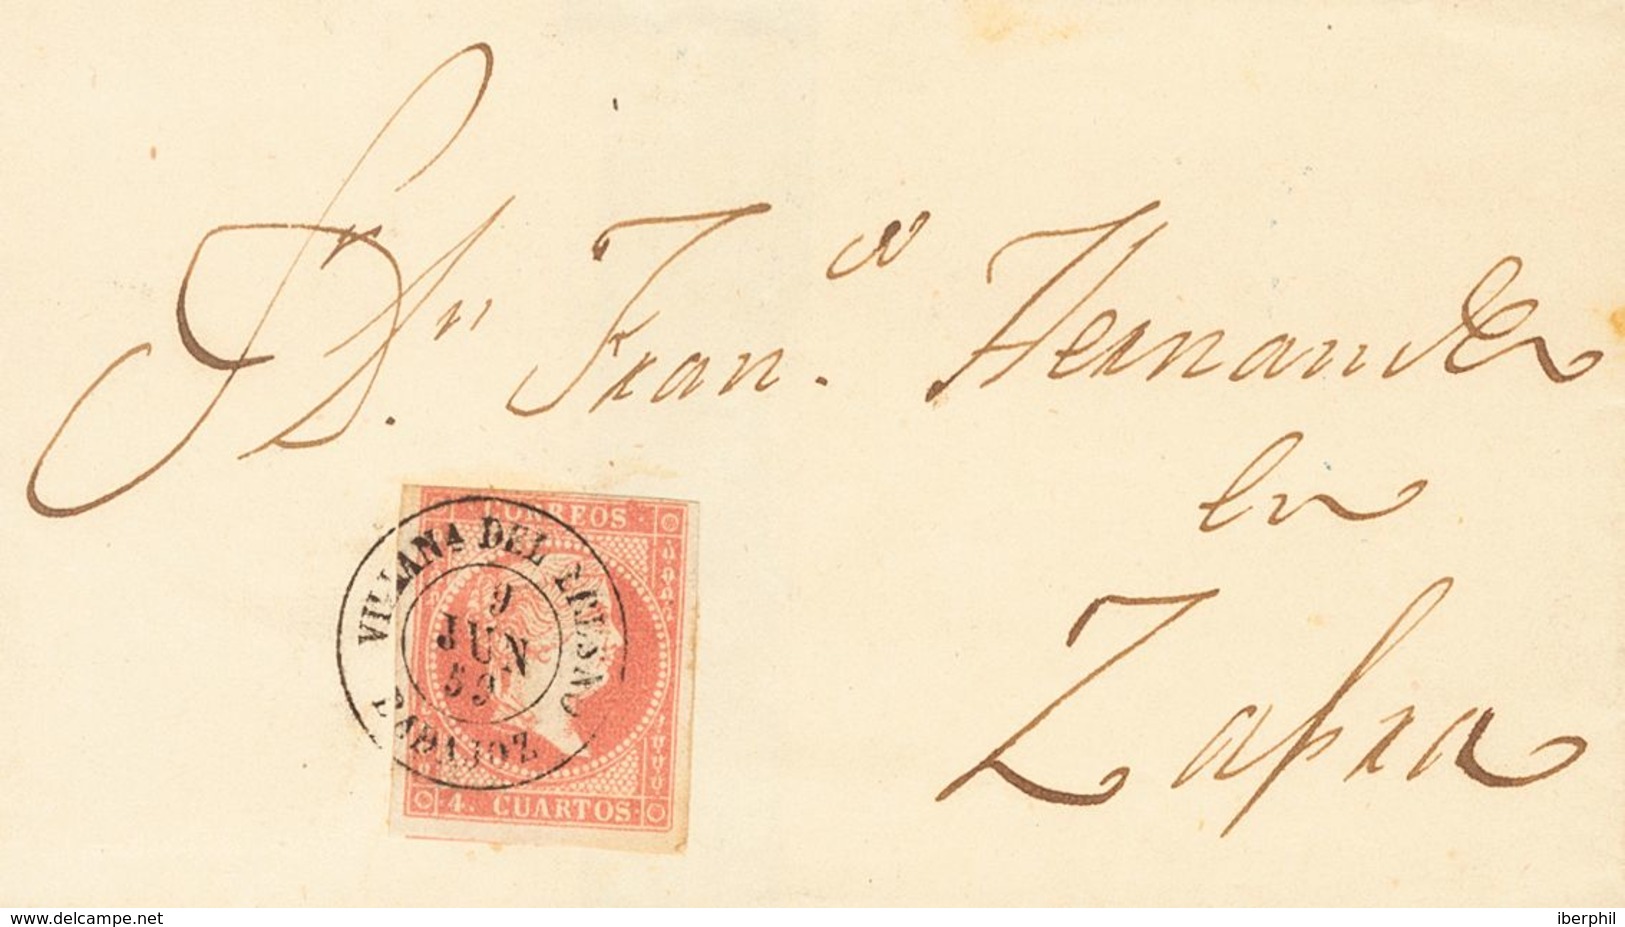 Sr. Dn. Franco. Hernandez
en
Zafra
CORREOS
VILLANA DEL FRESNO
9
JUN
59
BADAJOZ
4. CUARTOS
www.delcampe.net
iberphil